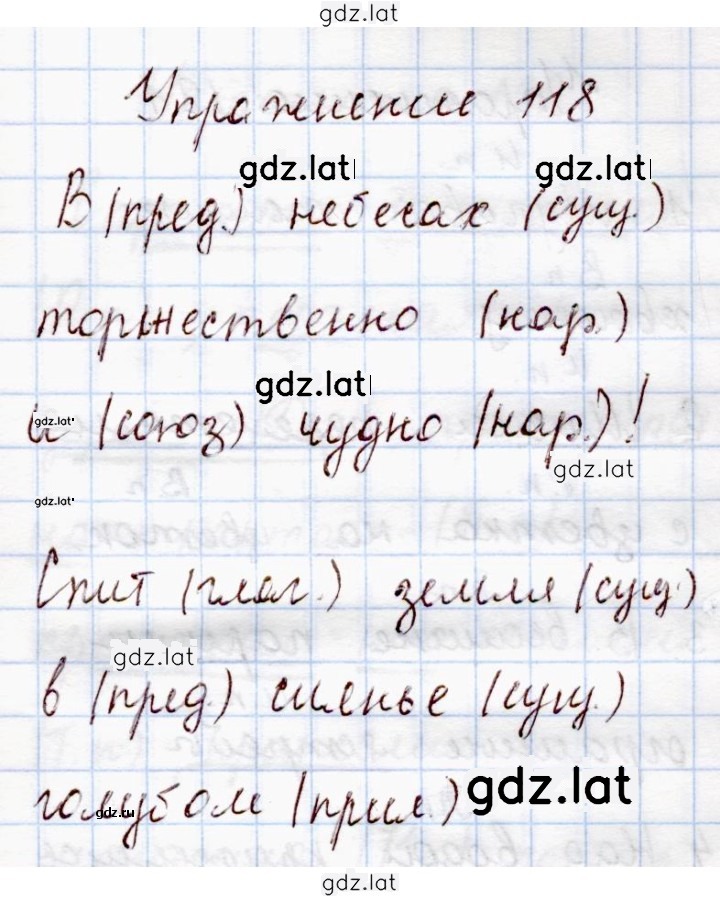 gdz.lat
Упражнение 118
gdz.lat gdz.lat
В (пред.) небесах (сущ.)
торжественно (нар.)
gdz.lat
и (союз) чудно (нар.)!
gdz.lat
gdz.lat
gdz.lat
Спит (глаг.) земля (сущ.)
gdz.lat
в (пред.) сиянье (сущ.)
голубом (прил.)
gdz.ru
gdz.lat
gdz.lat